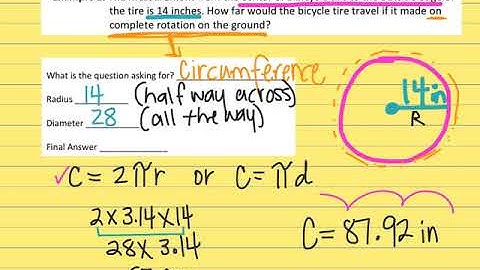 the tire is 14 inches. How far would the bicycle tire travel if it made on
complete rotation on the ground?
What is the question asking for? Circumference
Radius 14 (half way across)
Diameter 28 (all the way)
Final Answer
14in
R
✓C = 2πr or C = πd
2 x 3.14 x 14
28 x 3.14
C = 87.92 in